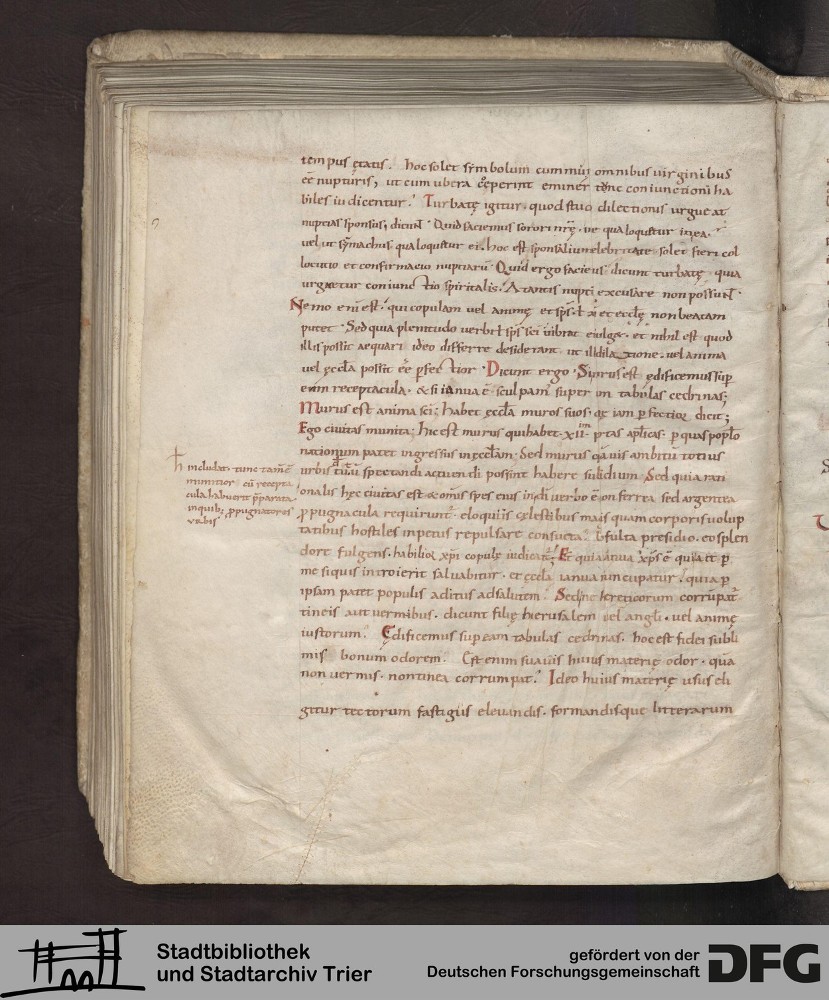 tempus ętatis. hoc solet symbolum cummuni omnibus virginibus
eē nupturis, ut cum ubera ceperint eminere tunc coniunctioni ha
biles iudicentur. Turbatę igitur quod studio dilectionis urgueat
nuptias sponsus, dicunt. Quid faciemus sorori nrę. die qua loquetur in ea.
vel ut symachus, qua loquetur ei. hoc est sponsalium celebritate solet fieri col
locutio et confirmatio nuptiarū. Quid ergo faciemus dicunt turbatę quia
urguetur coniunctio spiritalis. A tantis nupti excusare non possunt.
Nemo enī est. qui copulam vel animę et sps. ł xi et ecclę non beatam
putet. Sed quia plenitudo verbi ł sps sci vibrat et fulget. et nihil est quod
illis possit aequari ideo differre desiderant. ut illi dilatione. vel anima
vel ęccła possit eē pfectior. Dicunt ergo. Si murus est ędificemus sup
eum receptacula. & si ianua ē sculpam super eam tabulas cedrinas;
Murus est anima sci; habet ęccła muros suos. quę iam pfectior dicit;
Ego civitas munita; hic est murus qui habet .xii. portas aplicas. p quas poplo
nationum patet ingressus in ęccłam. Sed murus quāvis ambitū totius
urbis tam spectandi acuendi possint habere subsidium. Sed quia rati
onalis hęc civitas est & omīs spes eius in dī verbo ē non ferrea sed argentea
ppugnacula requirunt. eloquiis cęlestibus magis quam corporis volup
tatibus hostiles impetus repulsare consueta. Hoc fulta presidio. eo splen
dore fulgens. habilior xpi copulę iudicatur; Et quia ianua xps ē quia et p
me siquis introierit salvabitur. et ęccla ianua nuncupatur. quia p
ipsam patet populis aditus ad salutem. Sed ne hereticorum corrumpat
tineis aut vermibus. dicunt filię hierusalem vel angli. vel animę
iustorum. Ędificemus sup eam tabulas cedrinas. hoc est fidei subli
mis bonum odorem. Est enim suavis huius materię odor. quā
non vermis. non tinea corrumpat. Ideo huius materię usus eli
gitur tectorum fastigiis elevandis. formandisque litterarum
h includat. tunc tamē ē
munitior cū recepta
cula habuerit pparata
in quib ppugnatores
urbis
Stadtbibliothek
und Stadtarchiv Trier
gefördert von der
Deutschen Forschungsgemeinschaft
DFG